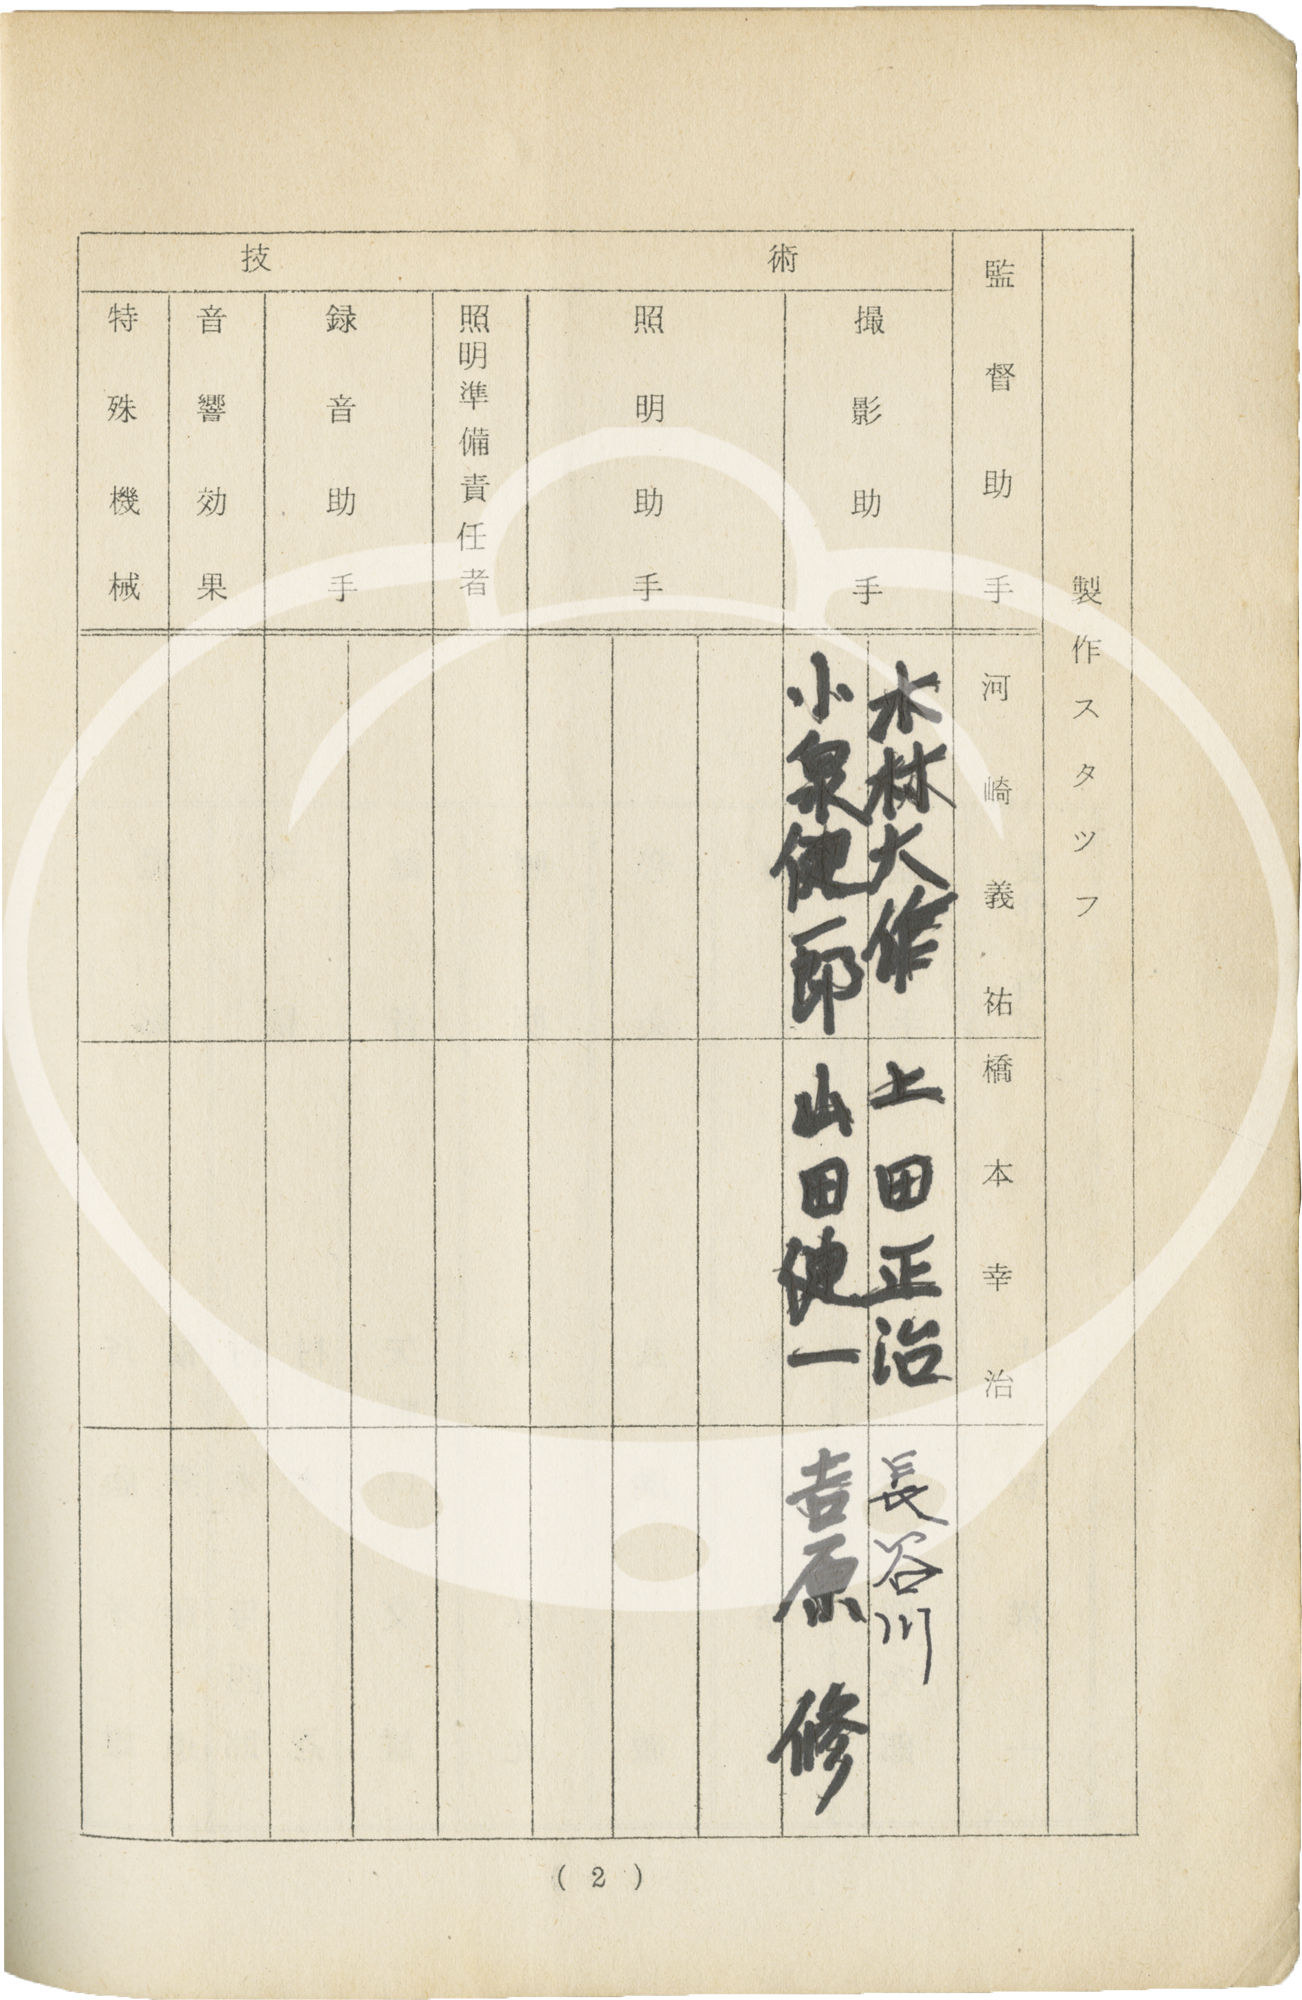 製作スタッフ
監督助手
河崎義祐
橋本幸治
技術
撮影助手
木林大作
上田正治
長谷川
小泉健一郎
山田健一
吉原 修
照明助手
照明準備責任者
録音助手
音響効果
特殊機械
( 2 )